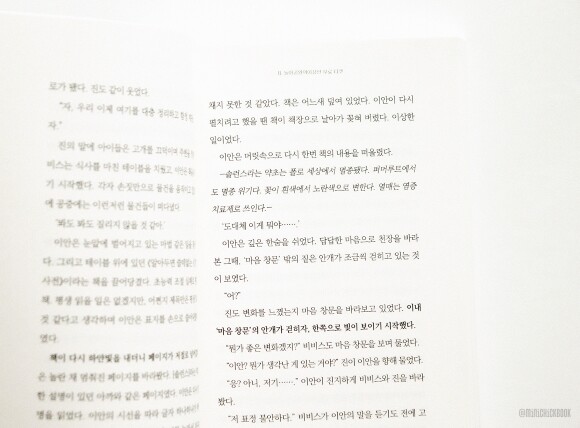 로가 됐다. 진도 같이 웃었다.
"자, 우리 이제 여기를 대충 정리하고
자."
진의 말에 아이들은 고개를 끄덕이며
비스는 식사를 마친 테이블을 치웠고,
기 시작했다. 각자 손짓만으로 물건을
에 공중에는 이런저런 물건들이 떠다녔다.
'봐도 봐도 질리지 않을 것 같아.'
이안은 눈앞에 벌어지고 있는 마법 같은
다. 그리고 테이블 위에 있던
사전>이라는 책을 끌어당겼다.
책. 평생 읽을 일은 없겠지만, 어쩐지
것 같다고 생각하며 이안은 표지를 손으로
였다.
책이 다시 하얀빛을 내더니 페이지가
은 놀란 채 멈춰진 페이지를 바라봤다.
한 설명이 있던 아까와는 같은 페이지였다.
명을 읽었다. 이안의 시선을 따라 글자
채지 못한 것 같았다. 책은 어느새 덮여 있었다. 이안이 다시
펼치려고 했을 땐 책이 책장으로 날아가 꽂혀 버렸다. 이상한
일이었다.
이안은 머릿속으로 다시 한번 책의 내용을 떠올렸다.
―슬런스라는 약초는 폴로 세상에서 멸종됐다. 퍼머루트에서
도 멸종 위기다. 꽃이 흰색에서 노란색으로 변한다. 열매는 염증
치료제로 쓰인다.―
'도대체 이게 뭐야…….'
이안은 깊은 한숨을 쉬었다. 답답한 마음으로 천장을 바라
본 그때, '마음 창문' 밖의 짙은 안개가 조금씩 걷히고 있는 것
이 보였다.
"어?"
진도 변화를 느꼈는지 마음 창문을 바라보고 있었다. 이내
'마음 창문'의 안개가 걷히자, 한쪽으로 빛이 보이기 시작했다.
"뭔가 좋은 변화겠지?" 비비스도 마음 창문을 보며 물었다.
"이안? 뭔가 생각난 게 있는 거야?" 진이 이안을 향해 물었다.
"응? 아니, 저기……." 이안이 진지하게 비비스와 진을 바라
봤다.
"저 표정 불안하다." 비비스가 이안의 말을 듣기도 전에 고